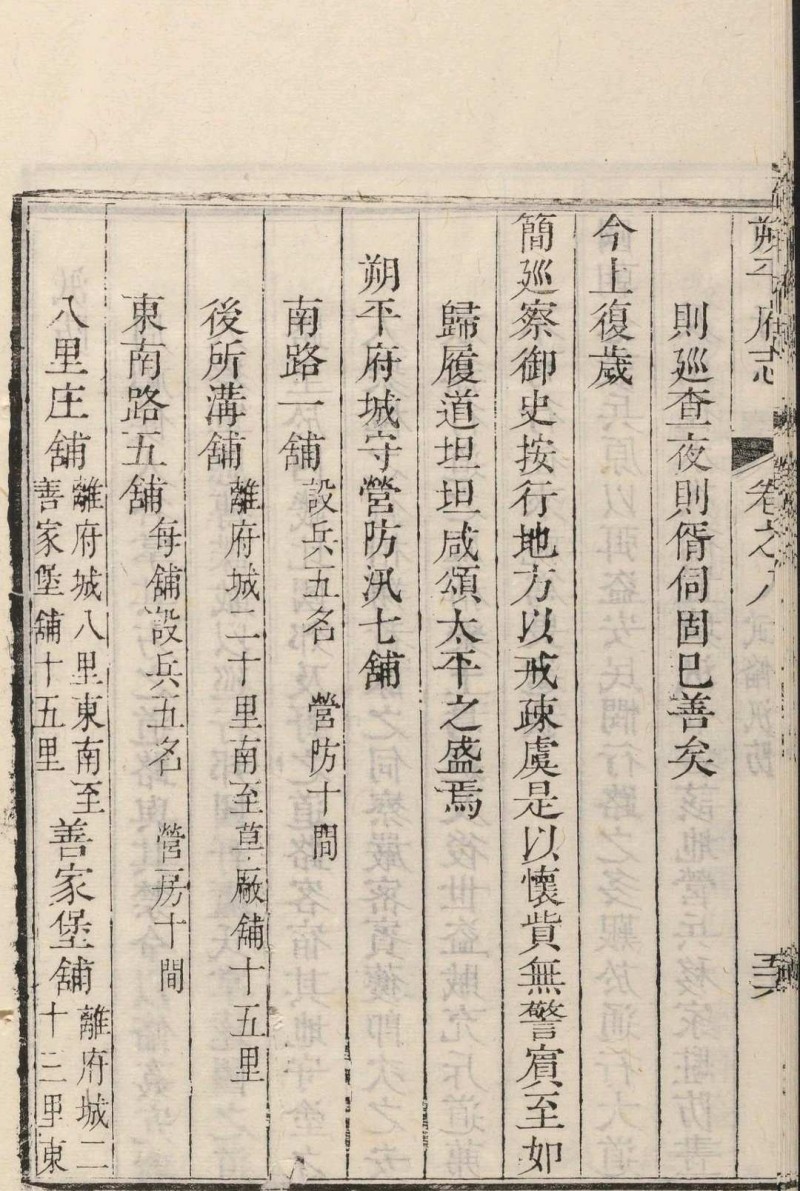 朔平府志 卷之八
則廵查夜則偦伺固已善矣
今上復歲
簡廵察御史按行地方以戒疎虞是以懷貲無警賔至如
歸履道坦坦咸頌太平之盛焉
朔平府城守營防汛七舖
南路一舖 設兵五名 營防十間
後所溝舖 離府城二十里南至草廠舖十五里
東南路五舖 每舖設兵五名 營房十間
八里庄舖 離府城八里東南至善家堡舖十五里 善家堡舖 離府城二十三里東